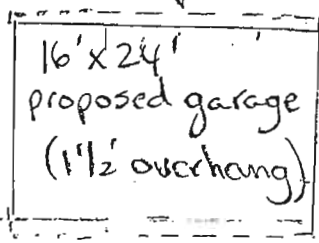 16'x24'
proposed garage
(1'1/2' overhang)